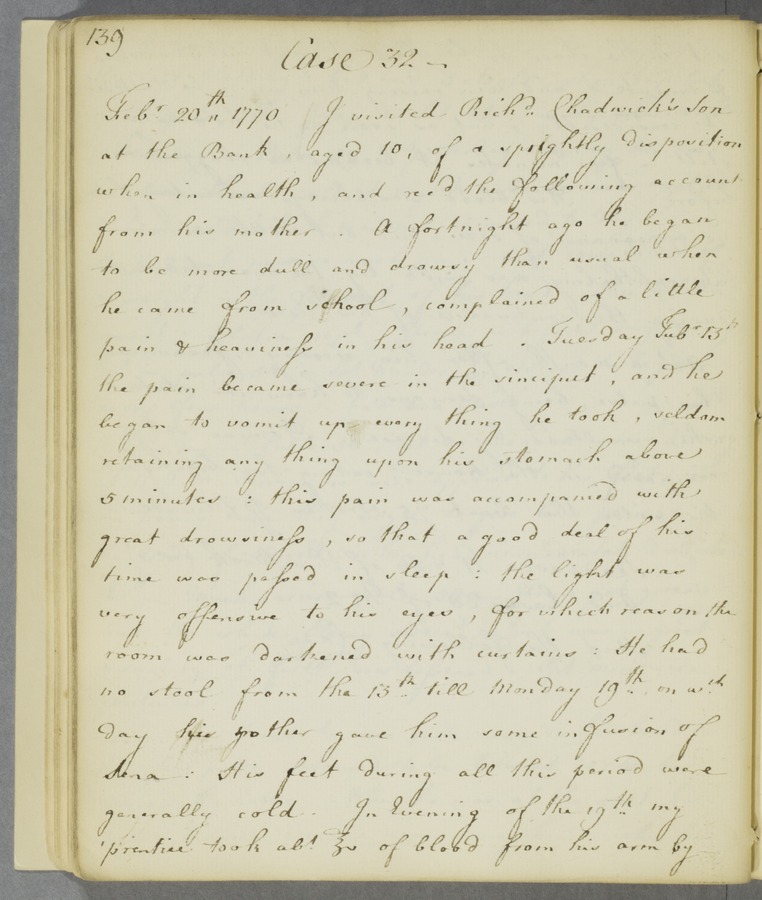 139
Case 32 -
Feb.r 20th 1770 I visited Rich.d Chadwick's son
at the Bank, aged 10, of a sprightly disposition
when in health, and rec'd the following account
from his mother. A fortnight ago he began
to be more dull and drowsy than usual when
he came from school, complained of a little
pain & heaviness in his head. Tuesday Feb.r 13th
the pain became severe in the sinciput, and he
began to vomit up every thing he took, seldom
retaining any thing upon his stomach above
5 minutes : this pain was accompanied with
great drowsiness, so that a good deal of his
time was passed in sleep : the light was
very offensive to his eyes, for which reason the
room was darkened with curtains : He had
no stool from the 13th till Monday 19th on wch
day his mother gave him some infusion of
Sena : His feet during all this period were
generally cold. In Evening of the 19th my
'prentice took abt ℥v of blood from his arm by